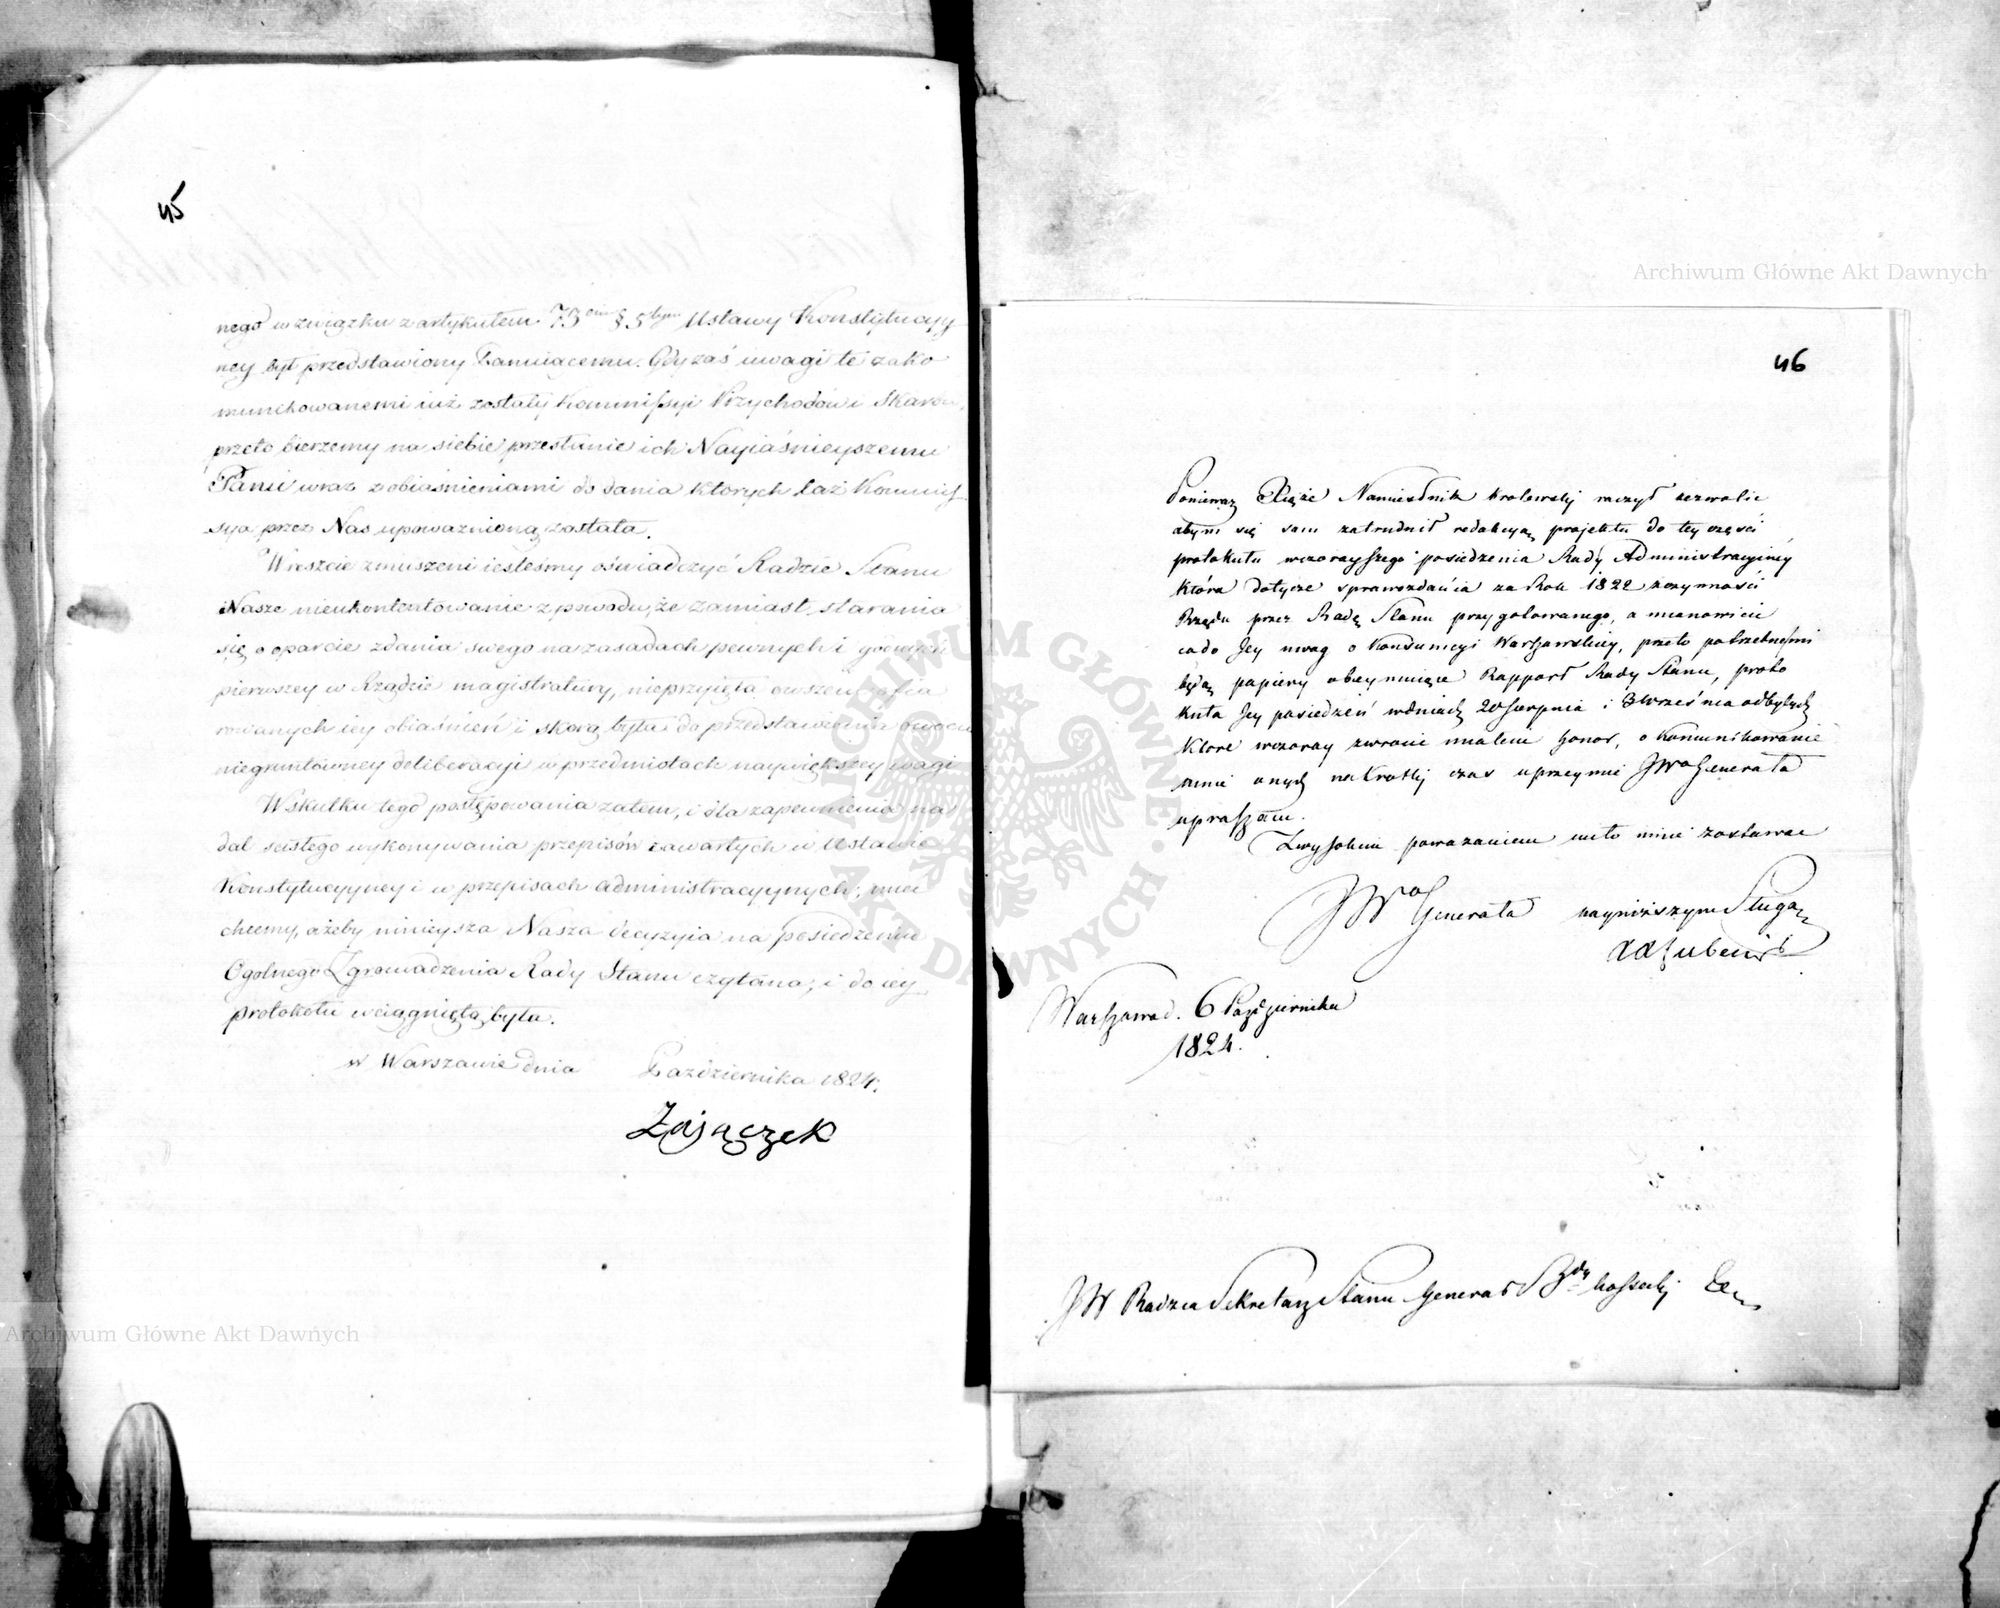 45
nego w związku z artykułem 73cim § 5tym Ustawy Konstytucyy
ney był przedstawiony Panuiącemu. Gdy zaś uwagi te zako
munikowanemi iuż zostały Kommissyi Przychodów i Skarbu,
przeto bierzemy na siebie przesłanie ich Nayiaśnieyszemu
Panu wraz z obiaśnieniami do dania których taż Kommis
sya przez Nas upoważnioną została.
Wreszcie zmuszeni iesteśmy oświadczyć Radzie Stanu
Nasze nieukontentowanie z powodu, że zamiast starania
się o oparcie zdania swego na zasadach pewnych i godnych
pierwszey w Rządzie magistratury, nieprzyięła owszem ofia
rowanych iey obiaśnień i skorą była do przedstawienia owocu
niegruntowney deliberacyi w przedmiotach naywiększey wagi
W skutku tego postępowania zatem, i dla zapewnienia na
dal scisłego wykonywania przepisów zawartych w Ustawie
Konstytucyyney i w przepisach administracyynych, mieć
chcemy, ażeby ninieysza Nasza decyzyia na posiedzeniu
Ogolnego Zgromadzenia Rady Stanu czytana, i do iey
protokołu wciągniętą była.
w Warszawie dnia Października 1824.
Zajączek
46
Ponieważ Xiąże Namiestnik Krolewski raczył zezwolić
abym się sam zatrudnił redakcyą projektu do tey części
protokułu wczorayszego posiedzenia Rady Administracyiney
która dotycze sprawozdania za Rok 1822 z czynności
Rządu przez Radę Stanu przygotowanego, a mianowicie
co do Jey uwag o Konsumcyi Warszawskiey, przeto potrzebnemi
będą papiery obeymuiące Rapport Rady Stanu, proto
kuła Jey posiedzeń w dniach 20 Sierpnia i 3 Września odbytych
które wczoray zwrocić miałem honor, o komunikowanie
mnie onych na krotki czas uprzeymie JWo Generała
upraszam.
Z wysokim poważaniem miło mnie zostawać
JWo Generała nayniższym Sługą
Lubecki
Warszawa d. 6 Października
1824.
JW Radca Sekretarz Stanu Generał Bdy Kossecki
Archiwum Główne Akt Dawnych
Archiwum Główne Akt Dawnych
ARCHIWUM GŁÓWNE AKT DAWNYCH